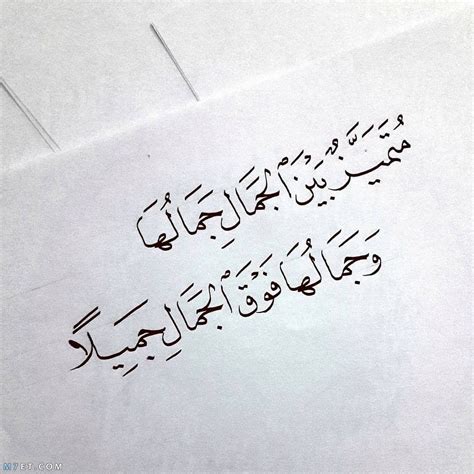 مُتَمَيَّزٌ بَيْنَ ٱلْجَمَالِ جَمَالُهَا
وَجَمَالُهَا فَوْقَ ٱلْجَمَالِ جَمِيلًا
M7ET.COM